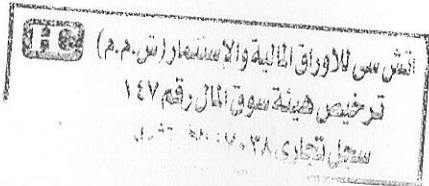 اتش سى للاوراق المالية والاستثمار (ش.م.م)
ترخيص هيئة سوق المال رقم ١٤٧
سجل تجارى